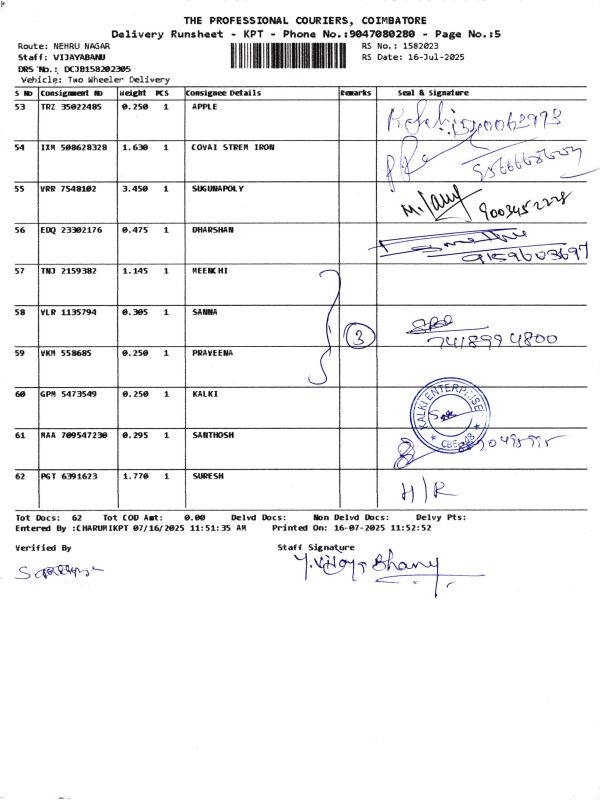 THE PROFESSIONAL COURIERS, COIMBATORE
Delivery Runsheet - KPT - Phone No.:9047080280 - Page No.:5
Route: NEHRU NAGAR RS No.: 1582023
Staff: VIJAYABANU RS Date: 16-Jul-2025
DRS No.: DCJB158202305
Vehicle: Two Wheeler Delivery
S No Consignment No Weight PCS Consignee Details Remarks Seal & Signature
53 TRZ 35022485 0.250 1 APPLE
54 IXM 508628328 1.630 1 COVAI STREM IRON
55 VRR 7548102 3.450 1 SUGUNAPOLY 9003452228
56 EDQ 23302176 0.475 1 DHARSHAN 9159603697
57 TNJ 2159382 1.145 1 MEENCHI
58 VLR 1135794 0.305 1 SANNA 3 7418994800
59 VKM 558685 0.250 1 PRAVEENA
60 GPM 5473549 0.250 1 KALKI KALKI ENTERPRISE
61 MAA 709547230 0.295 1 SANTHOSH
62 PGT 6391623 1.770 1 SURESH H/R
Tot Docs: 62 Tot COD Amt: 0.00 Delvd Docs: Non Delvd Docs: Delvy Pts:
Entered By :CHARUMIKPT 07/16/2025 11:51:35 AM Printed On: 16-07-2025 11:52:52
Verified By Staff Signature